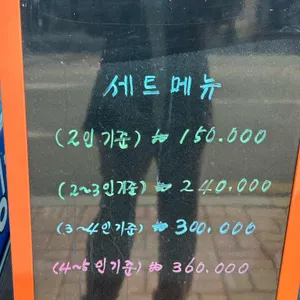 세트메뉴
(2인 기준) ₩ 150.000
(2~3인기준) ₩ 240.000
(3~4인기준) ₩ 300.000
(4~5인기준) ₩ 360.000